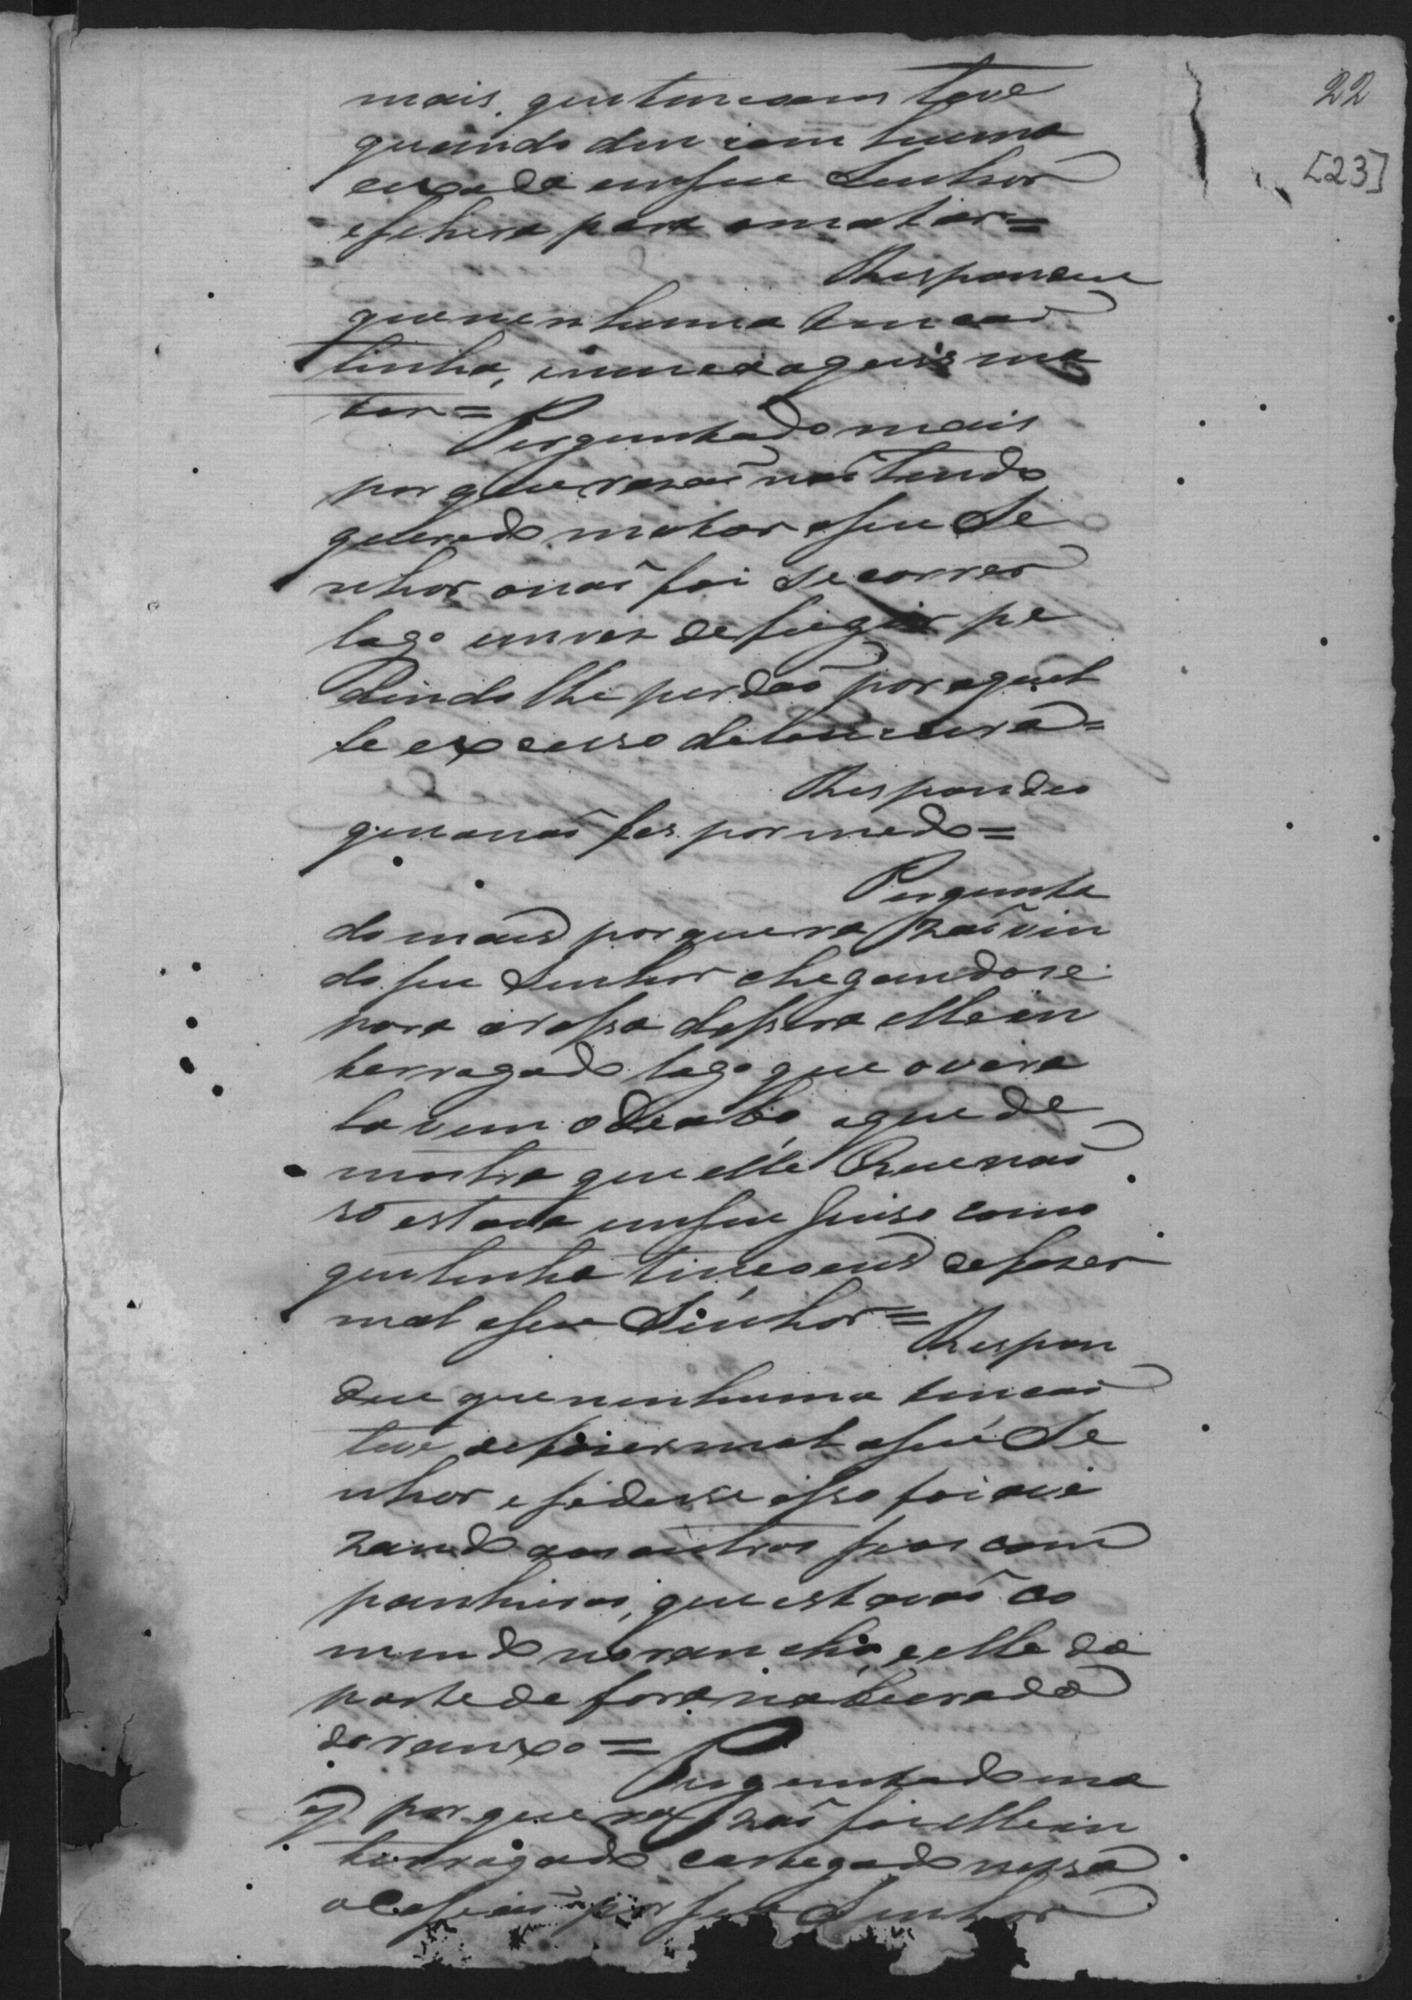 22
[23]
mais que tencam teve
quando deu com huma
enxada em seu Senhor
e se hera para o matar =
Respondeu
que nenhuma tencaõ
tinha, nunca o quis ma
tar = Perguntado mais
por que rasaõ naõ tendo
querido matar a seu Se
nhor o naõ foi Secorrer
logo em ves de fugir pe
dindo lhe perdaõ por aquel
le excesso de loucura =
Respondeo
que o naõ fes por medo =
Pergunta
do mais por que ra zaõ vin
do seu Senhor chegandose
para a rossa dissera elle in
terrogado logo que o vira
la vem o Diabo o que de
mostra que elle Reu naõ
só estava em seu Juiso como
que tinha tincoens de faser
mal a seu Senhor = Respon
deu que nenhuma tencaõ
teve de faser mal a seu Se
nhor e se disse isso foi avi
zando aos outros seos com
panheiros, que estavaõ co
mendo no rancho, e elle da
parte de fora na beirada
do ranxo = Perguntado ma
is por que ra zaõ foi elle in
terrogado castigado nessa
ocasiaõ por seu Senhor